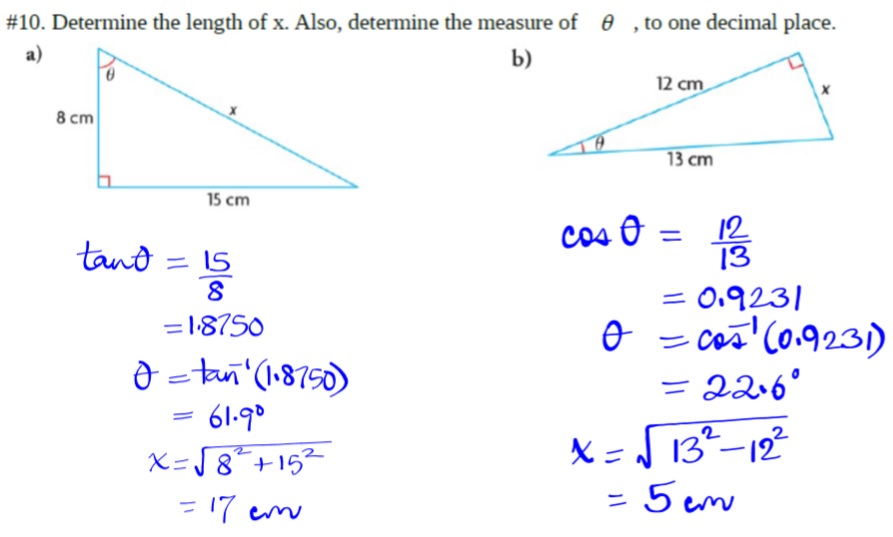 #10. Determine the length of x. Also, determine the measure of θ , to one decimal place.
a)
θ
8 cm
x
15 cm
tanθ = 15/8
= 1.8750
θ = tan⁻¹(1.8750)
= 61.9°
x = √8² + 15²
= 17 cm
b)
12 cm
x
θ
13 cm
cos θ = 12/13
= 0.9231
θ = cos⁻¹(0.9231)
= 22.6°
x = √13² – 12²
= 5 cm